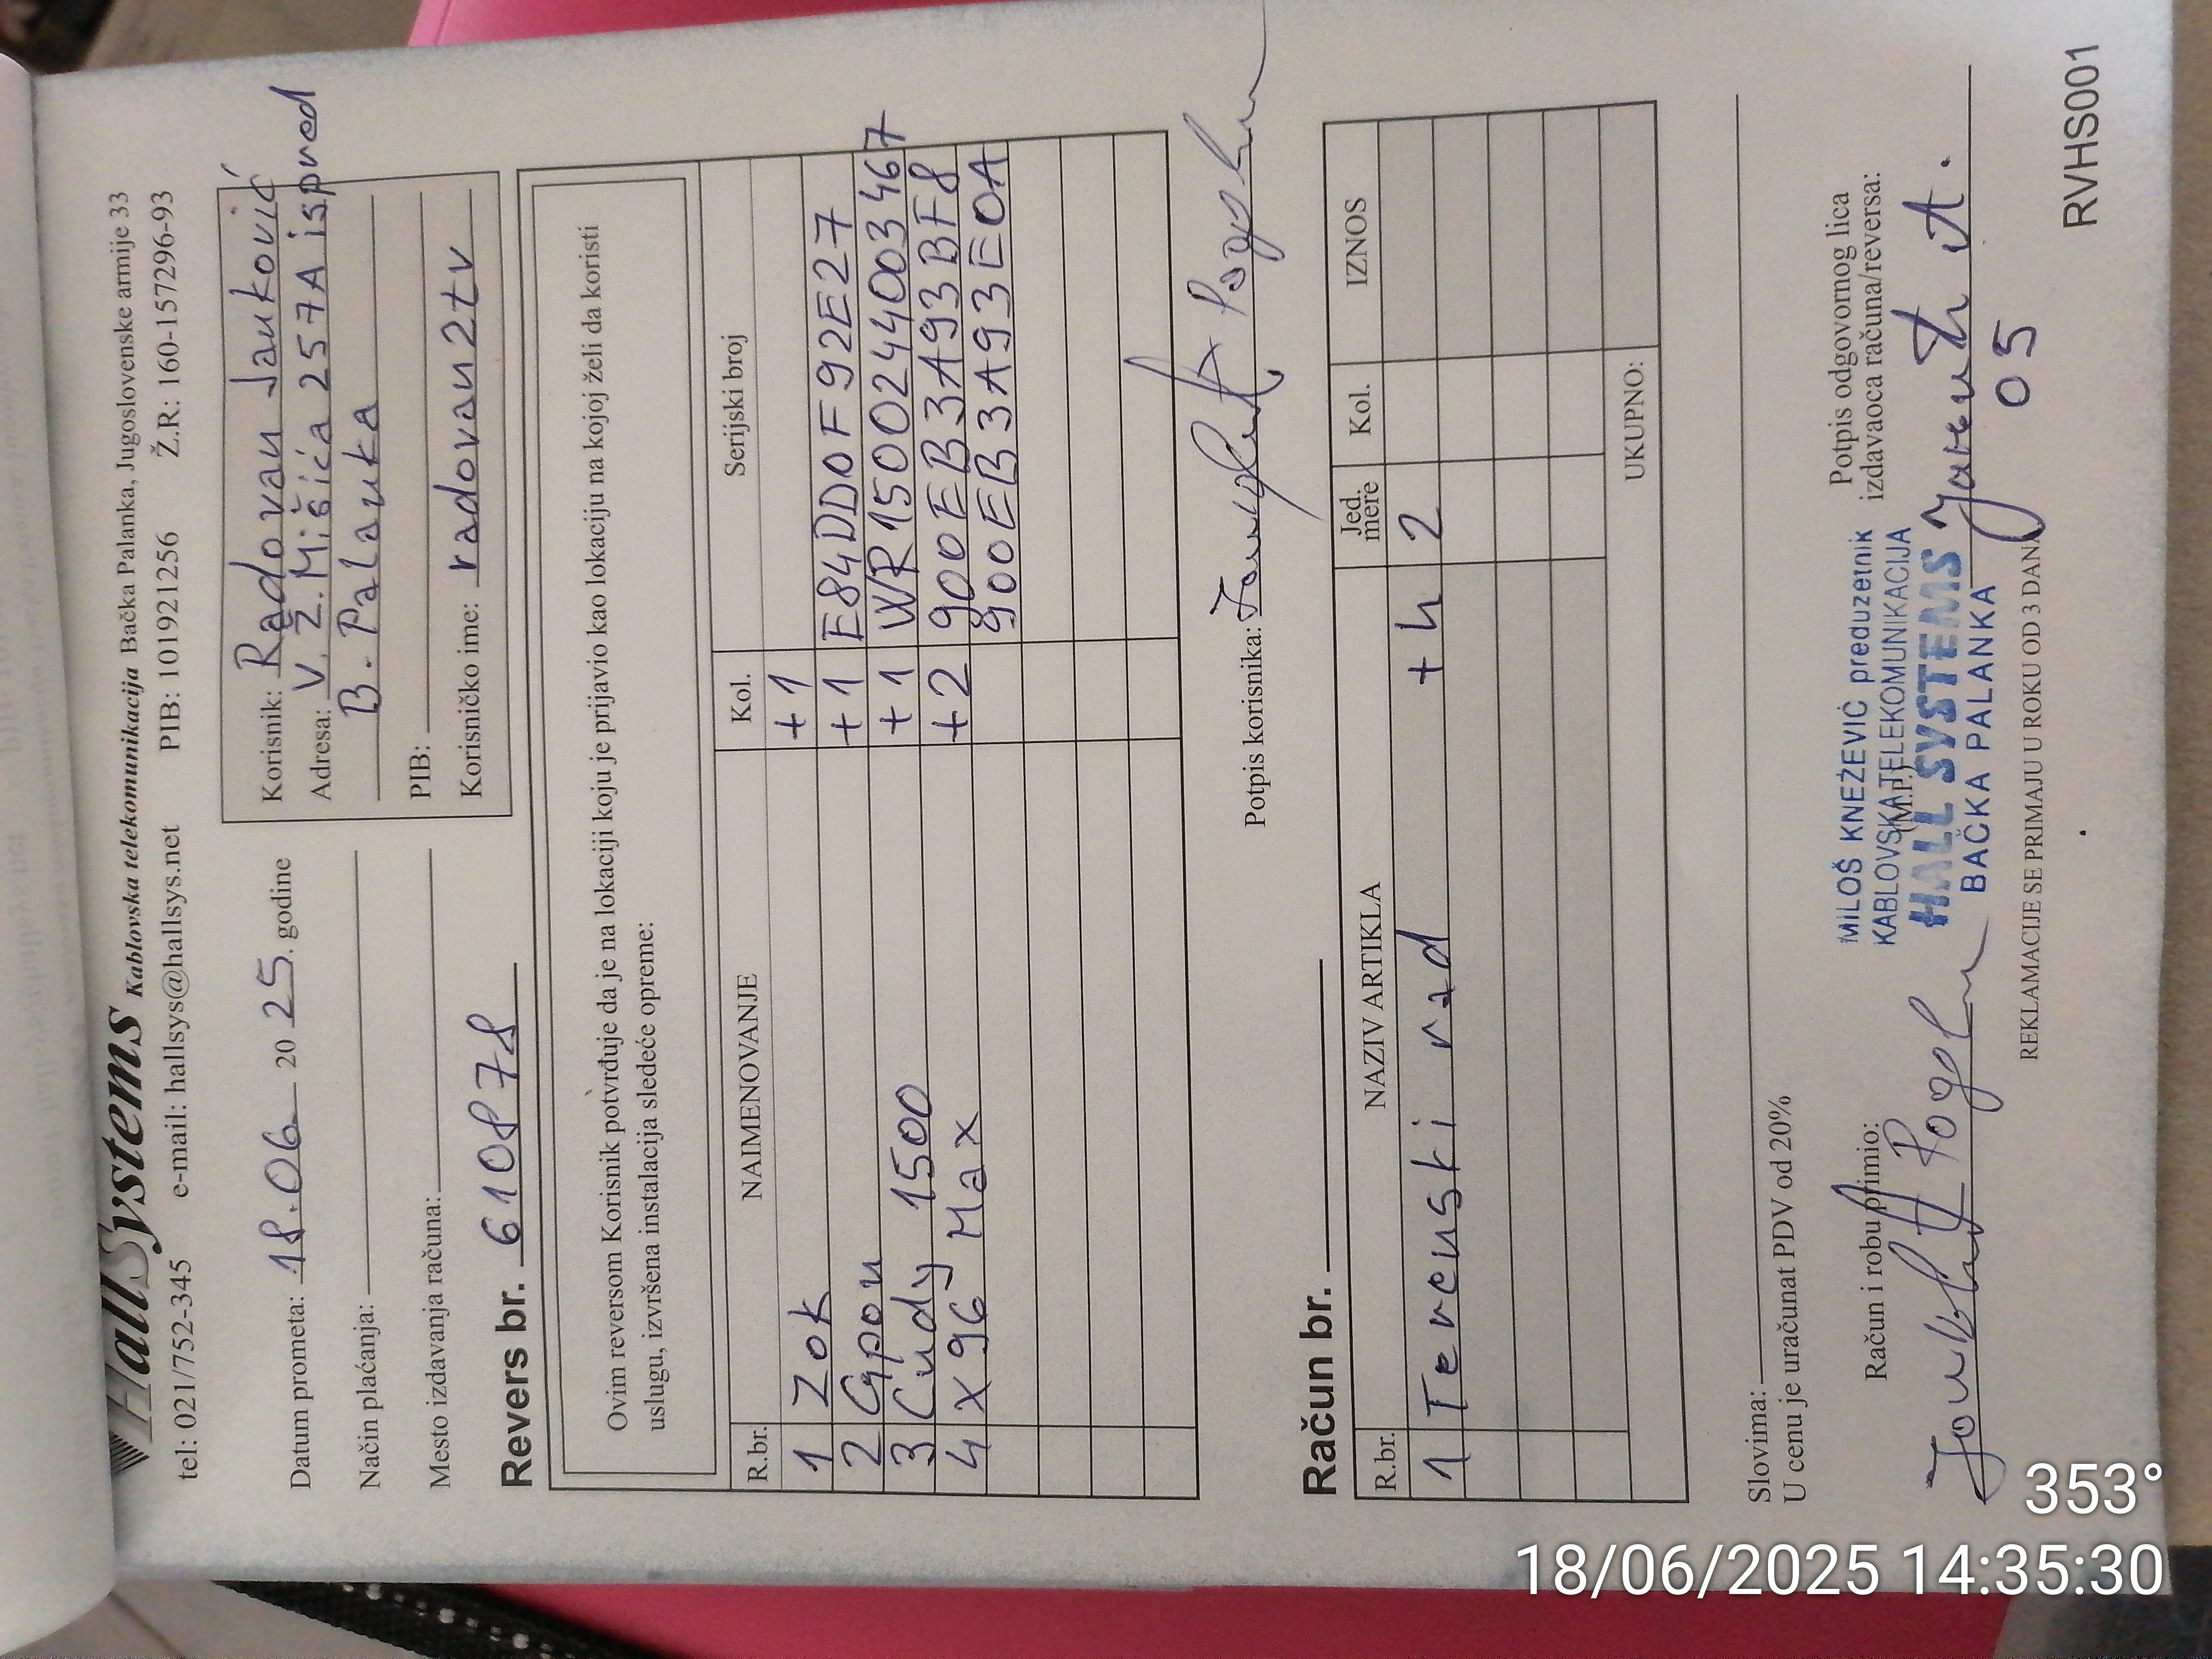 HallSystems Kablovska telekomunikacija Bačka Palanka, Jugoslovenske armije 33
tel: 021/752-345 e-mail: hallsys@hallsys.net PIB: 101921256 Ž.R: 160-157296-93
Datum prometa: 18.06 20 25. godine
Način plaćanja:
Mesto izdavanja računa:
Revers br. 610878
Korisnik: Radovan Janković
Adresa: V. Ž. Mišića 257A ispred
B. Palanka
PIB:
Korisničko ime: radovan2tv
Ovim reversom Korisnik potvrđuje da je na lokaciji koju je prijavio kao lokaciju na kojoj želi da koristi
uslugu, izvršena instalacija sledeće opreme:
R.br. NAIMENOVANJE Kol. Serijski broj
1 Zok +1
2 Gpon +1 E84DD0F92E27
3 Cudy 1500 +1 WR1500244003467
4 X96 Max +2 900EB3A93BF8
900EB3A93E0A
Potpis korisnika:
Račun br.
R.br. NAZIV ARTIKLA Jed. mere Kol. IZNOS
1 Terenski rad +h 2
UKUPNO:
Slovima:
U cenu je uračunat PDV od 20%
Račun i robu primio:
MILOŠ KNEŽEVIĆ preduzetnik
KABLOVSKA TELEKOMUNIKACIJA
(M.P.)
HALL SYSTEMS
BAČKA PALANKA
Potpis odgovornog lica
izdavaoca računa/reversa:
05
REKLAMACIJE SE PRIMAJU U ROKU OD 3 DANA
RVHS001
353°
18/06/2025 14:35:30